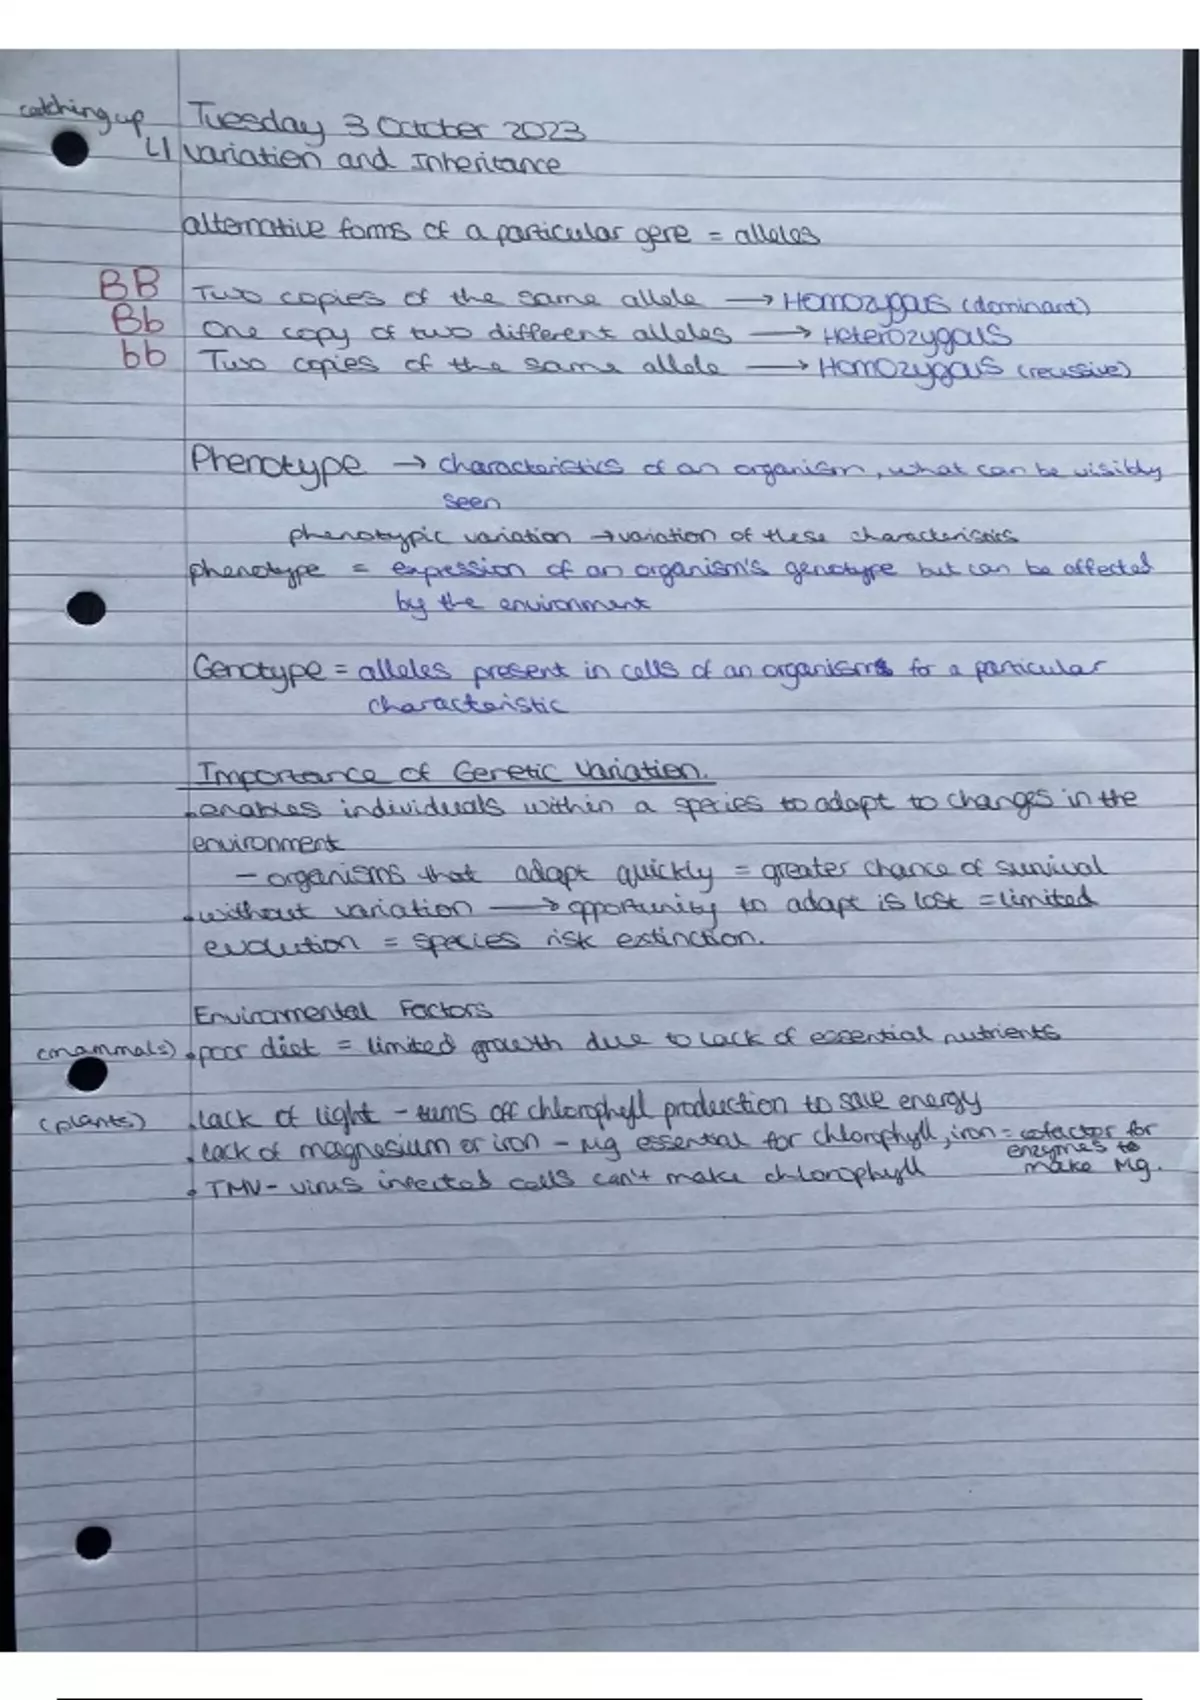 catching up Tuesday 3 October 2023
L1 Variation and Inheritance
alternative forms of a particular gene = alleles
BB Two copies of the same allele → Homozygous (dominant)
Bb One copy of two different alleles → Heterozygous
bb Two copies of the same allele → Homozygous (recessive)
Phenotype → characteristics of an organism, what can be visibly
seen
phenotypic variation → variation of these characteristics
phenotype = expression of an organism's genotype but can be affected
by the environment
Genotype = alleles present in cells of an organisms for a particular
characteristic
Importance of Genetic Variation.
• enables individuals within a species to adapt to changes in the
environment
- organisms that adapt quickly = greater chance of survival
• without variation → opportunity to adapt is lost = limited
evolution = species risk extinction.
Enviromental Factors
(mammals) • poor diet = limited growth due to lack of essential nutrients
(plants) • lack of light - turns off chlorophyll production to save energy
• lack of magnesium or iron - Mg essential for chlorophyll, iron = cofactor for
enzymes to
make Mg.
• TMV - virus infected cells can't make chlorophyll